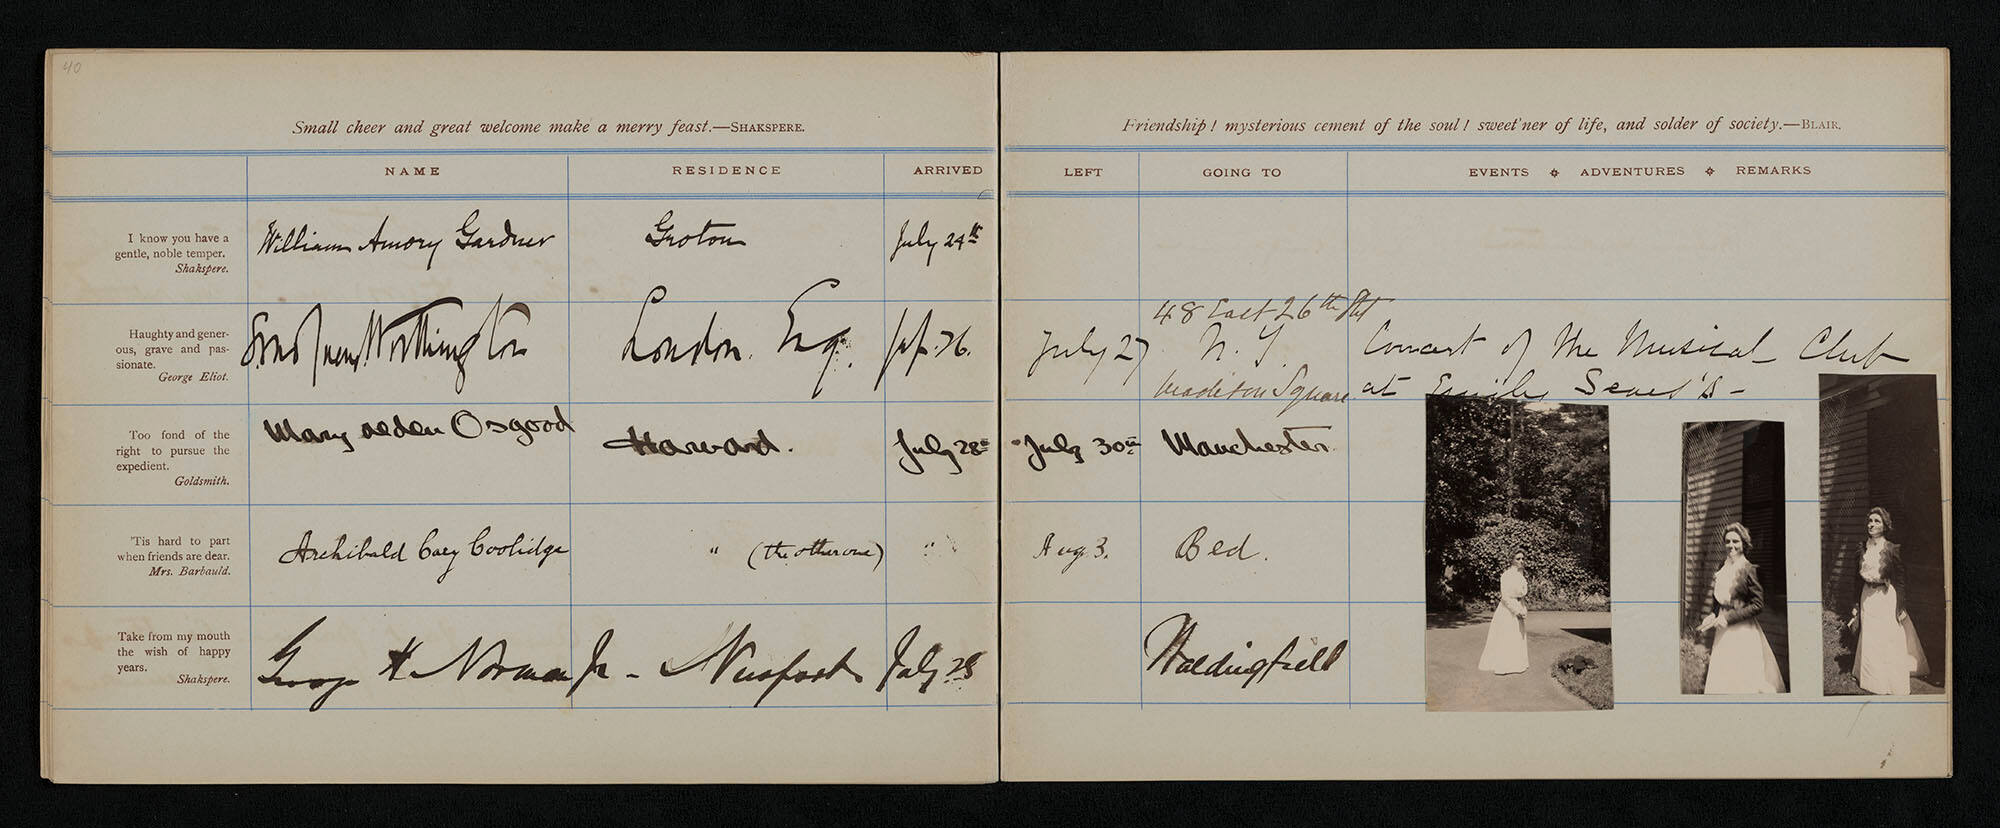 40
Small cheer and great welcome make a merry feast.—SHAKSPERE.
NAME RESIDENCE ARRIVED
I know you have a
gentle, noble temper.
Shakspere.
William Amory Gardner Groton July 24th
Haughty and gener-
ous, grave and pas-
sionate.
George Eliot.
Worthington London. Eng. 26.
Too fond of the
right to pursue the
expedient.
Goldsmith.
Mary Alden Osgood Harvard. July 28th
'Tis hard to part
when friends are dear.
Mrs. Barbauld.
Archibald Cary Coolidge " (the other one) "
Take from my mouth
the wish of happy
years.
Shakspere.
George H. Norman Jr - Newport July 28
Friendship! mysterious cement of the soul! sweet'ner of life, and solder of society.—BLAIR.
LEFT GOING TO EVENTS ADVENTURES REMARKS
48 East 26th St
July 27 N. Y Concert of the Musical Club
Madison Square at Emily Sears's -
July 30th Manchester.
Aug 3. Bed.
Waldingfield